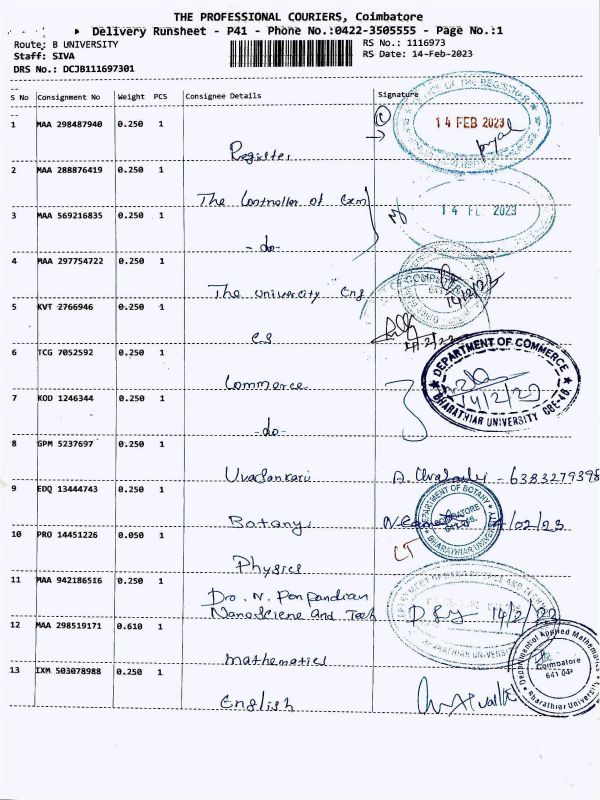 THE PROFESSIONAL COURIERS, Coimbatore
Delivery Runsheet - P41 - Phone No.:0422-3505555 - Page No.:1
Route: B UNIVERSITY
Staff: SIVA
DRS No.: DCJB111697301
RS No.: 1116973
RS Date: 14-Feb-2023
S No Consignment No Weight PCS Consignee Details Signature
1 MAA 298487940 0.250 1
Register
14 FEB 2023
2 MAA 288876419 0.250 1
The Controller of Exm
3 MAA 569216835 0.250 1
-do-
14 FE 2023
4 MAA 297754722 0.250 1
The university Eng
14/2/23
5 KVT 2766946 0.250 1
CS
14/2/23
6 TCG 7052592 0.250 1
Commerce
DEPARTMENT OF COMMERCE
14/2/23
BHARATHIAR UNIVERSITY CBE-46.
7 KOD 1246344 0.250 1
-do-
8 GPM 5237697 0.250 1
6383279398
9 EDQ 13444743 0.250 1
Botany
DEPARTMENT OF BOTANY
BHARATHIAR UNIVE
/02/23
10 PRO 14451226 0.050 1
Physics
CT
11 MAA 942186516 0.250 1
Dro. N. Ponpandian
Nanosciene And Tech
14/2/23
12 MAA 298519171 0.610 1
mathematics
Department of Applied Mathematics
Coimbatore
641 046
Bharathiar University
13 IXM 503078988 0.250 1
English